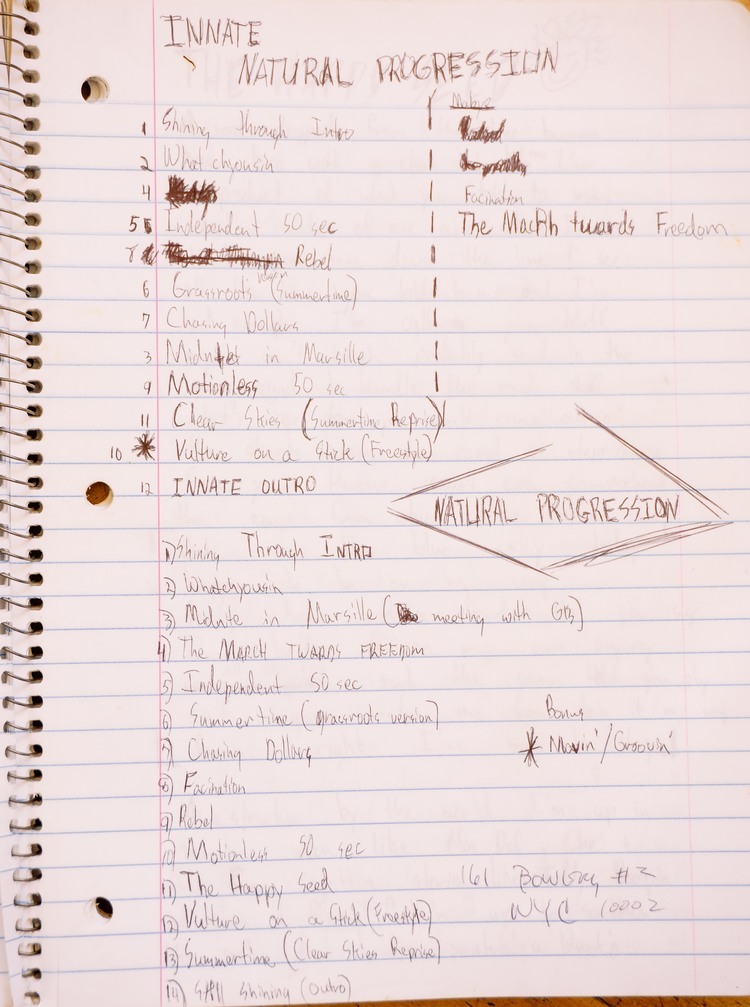 INNATE
NATURAL PROGRESSION
Maybe
1 Shining through Intro
2 Whatchyousin
4 Facination
5 Independent 50 sec The March twards Freedom
8 Rebel
6 Grassroots version (Summertime)
7 Chasing Dollars
3 Midnite in Marsille
9 Motionless 50 sec
11 Clear Skies (Summertime Reprise)
10 * Vulture on a Stick (Freestyle)
12 INNATE OUTRO
NATURAL PROGRESSION
1) Shining Through INTRO
2) Whatchyousin
3) Midnite in Marsille ( meeting with GB)
4) The MARCH TWARDS FREEDOM
5) Independent 50 sec
6) Summertime (grassroots version)
Bonus
7) Chasing Dollars * Movin'/Groovin'
8) Facination
9) Rebel
10) Motionless 50 sec
11) The Happy Seed 161 Bowery #2
12) Vulture on a Stick (Freestyle) NYC 10002
13) Summertime (Clear Skies Reprise)
14) Still Shining (Outro)